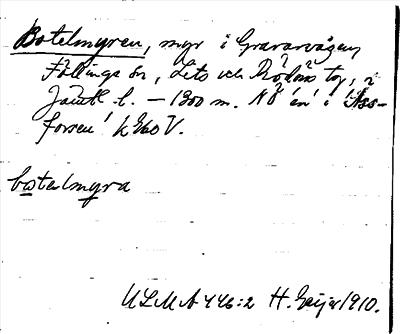 Botelmyren, myr i Gravarvågen,
Föllinge sn, Lits och Rödöns tg, i
Jämtl. l. – 1300 m. NÖ 'en' i 'Äss-
forsen' k 960 V.
botelmyra
ULMA 446:2 H. Geijer 1910.